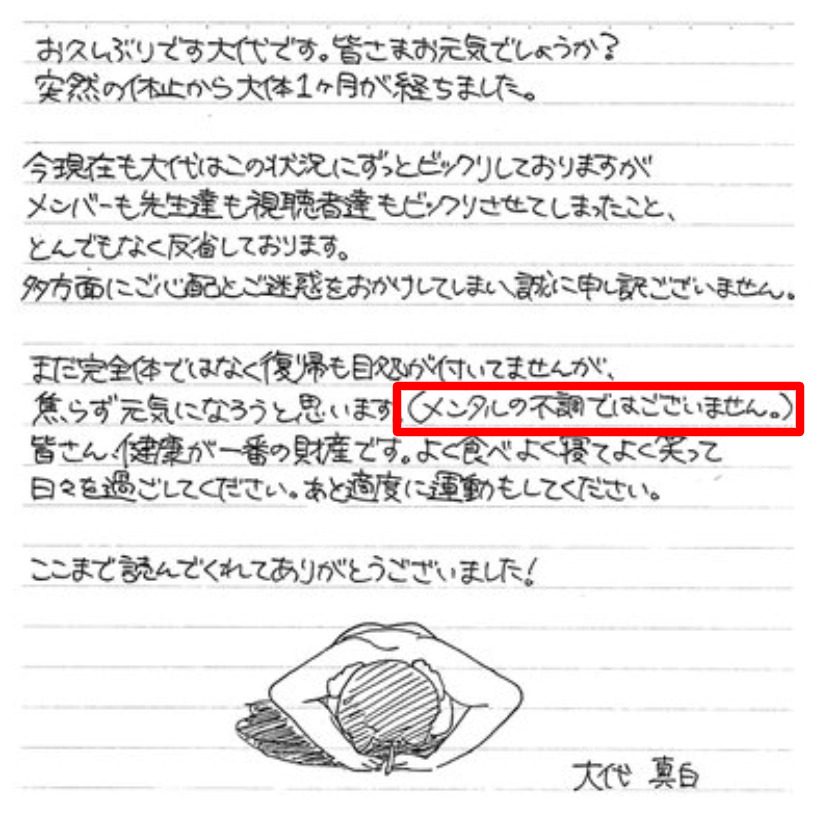 お久しぶりです大代です。皆さまお元気でしょうか?
突然の休止から大体1ヶ月が経ちました。
今現在も大代はこの状況にずっとビックリしておりますが
メンバーも先生達も視聴者達もビックリさせてしまったこと、
とんでもなく反省しております。
多方面にご心配とご迷惑をおかけしてしまい、誠に申し訳ございません。
まだ完全体ではなく復帰も目処が付いてませんが、
焦らず元気になろうと思います (メンタルの不調ではございません。)
皆さん、健康が一番の財産です。よく食べよく寝てよく笑って
日々を過ごしてください。あと適度に運動もしてください。
ここまで読んでくれてありがとうございました!
大代 真白